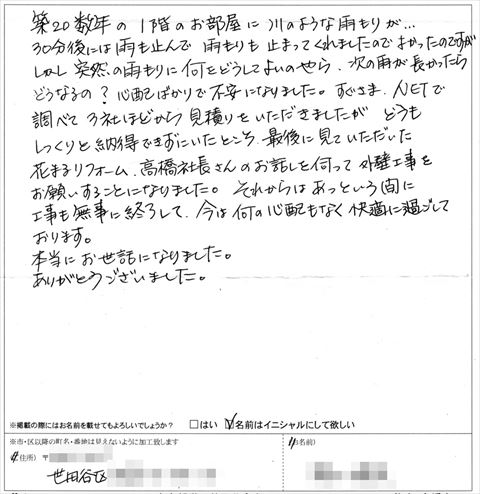 築20数年の1階のお部屋に川のような雨もりが…
30分後には雨も止んで雨もりも止まってくれましたのでよかったのですが
しかし突然の雨もりに何をどうしてよいのやら、次の雨が長かったら
どうなるの？心配ばかりで不安になりました。すぐさま、NETで
調べて3社ほどから見積りをいただきましたがどうも
しっくりと納得できずにいたところ、最後に見ていただいた
花まるリフォーム、高橋社長さんのお話しを伺って外壁工事を
お願いすることになりました。それからはあっという間に
工事も無事に終了して、今は何の心配もなく快適に過ごして
おります。
本当にお世話になりました。
ありがとうございました。
※掲載の際にはお名前を載せてもよろしいでしょうか？ □はい ☑名前はイニシャルにして欲しい
※市・区以降の町名・番地は見えないように加工致します
住所）〒
名前）
世田谷区